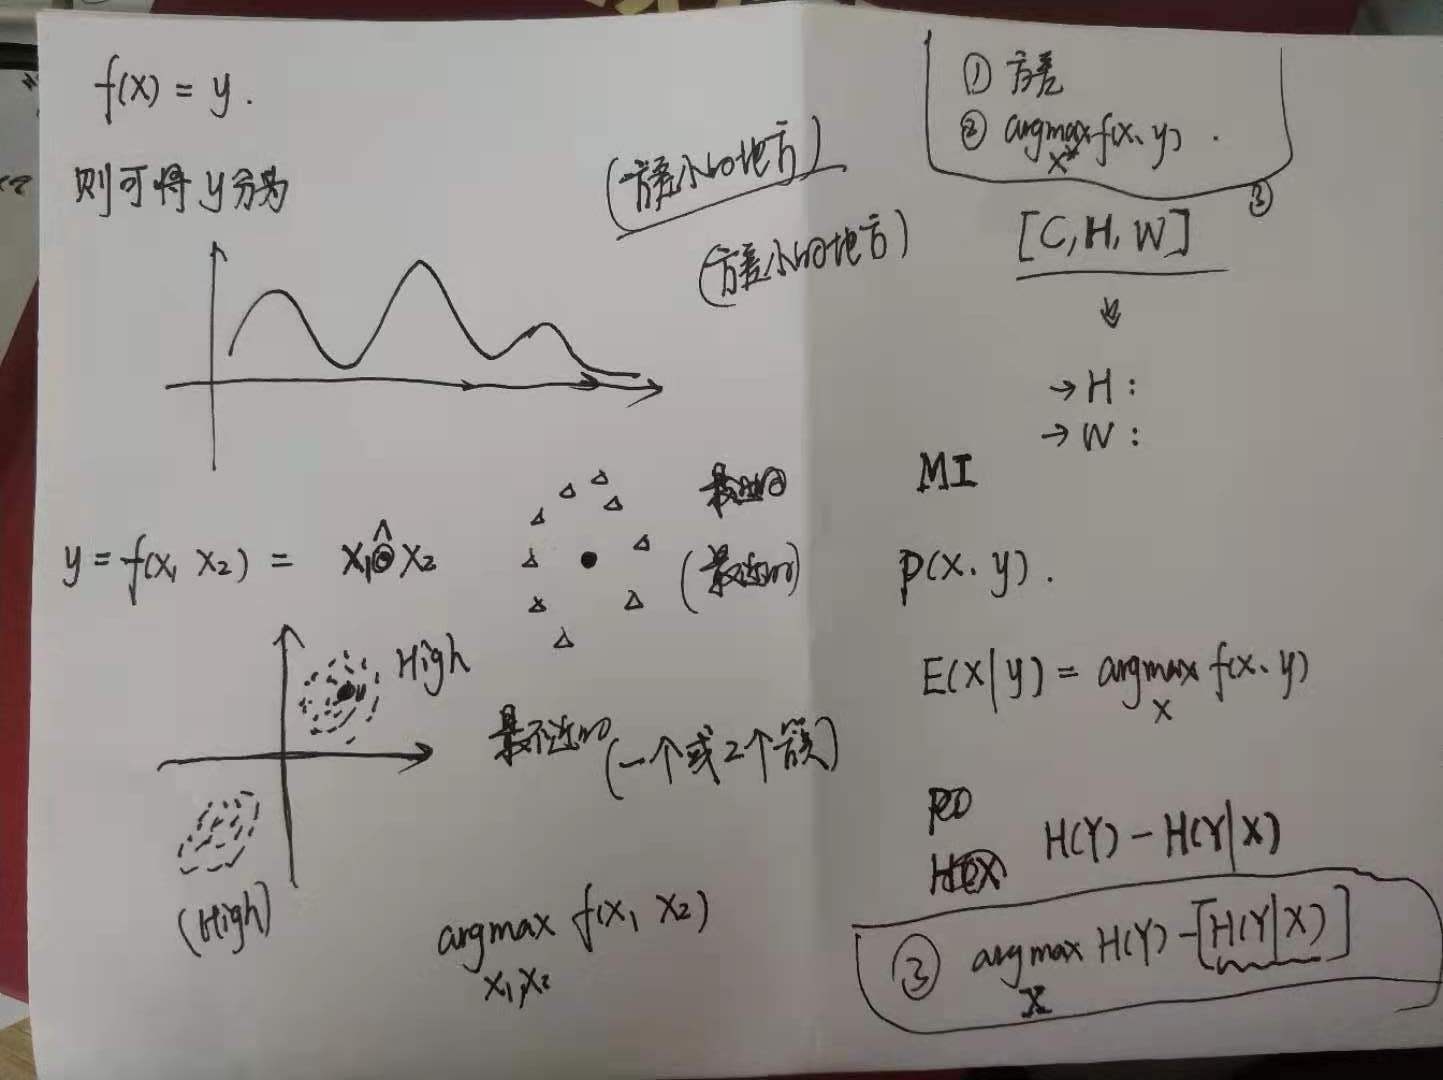 f(x) = y .
则可将 y 分为
(方差小的地方)
(方差小的地方)
y = f(x₁ x₂) = x₁ ⊙̂ x₂
High
(一个或2个簇)
(High)
argmax f(x₁ x₂)
x₁, x₂
① 方差
② argmax f(x、y) .
x*
③
[C, H, W]
→ H :
→ W :
MI
p(x、y) .
E(x|y) = argmax f(x、y)
x
H(Y) - H(Y|X)
③ argmax H(Y) - [H(Y|X)]
X